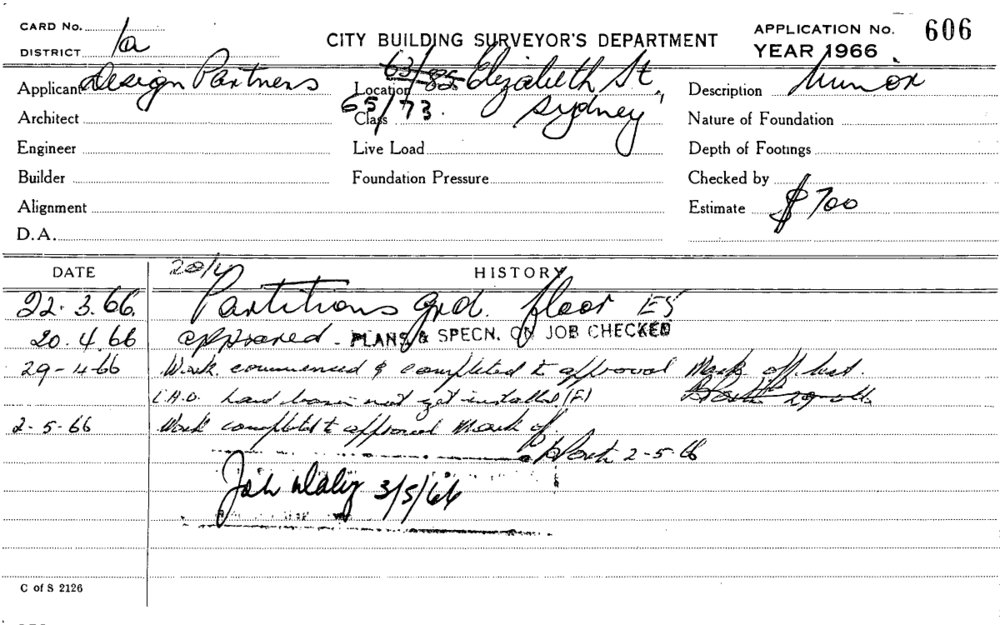 CARD No.
1a
DISTRICT
CITY BUILDING SURVEYOR'S DEPARTMENT
APPLICATION No. 606
YEAR 1966
Applicant Design Partners
Location 63/85 Elizabeth St.,
Sydney
Description Minor
Architect
Class 65/73.
Nature of Foundation
Engineer
Live Load
Depth of Footings
Builder
Foundation Pressure
Checked by
Alignment
Estimate $700
D.A.
DATE
HISTORY
20/4
22.3.66. Partitions grd. floor
20.4.66 approved - PLANS & SPECN. ON JOB CHECKED
29-4-66 Work commenced & completed to approval Mark off
hand basin not yet installed (F)
2-5-66 Work completed to approval Mark off
2-5-66
John Daly 3/5/66
C of S 2126